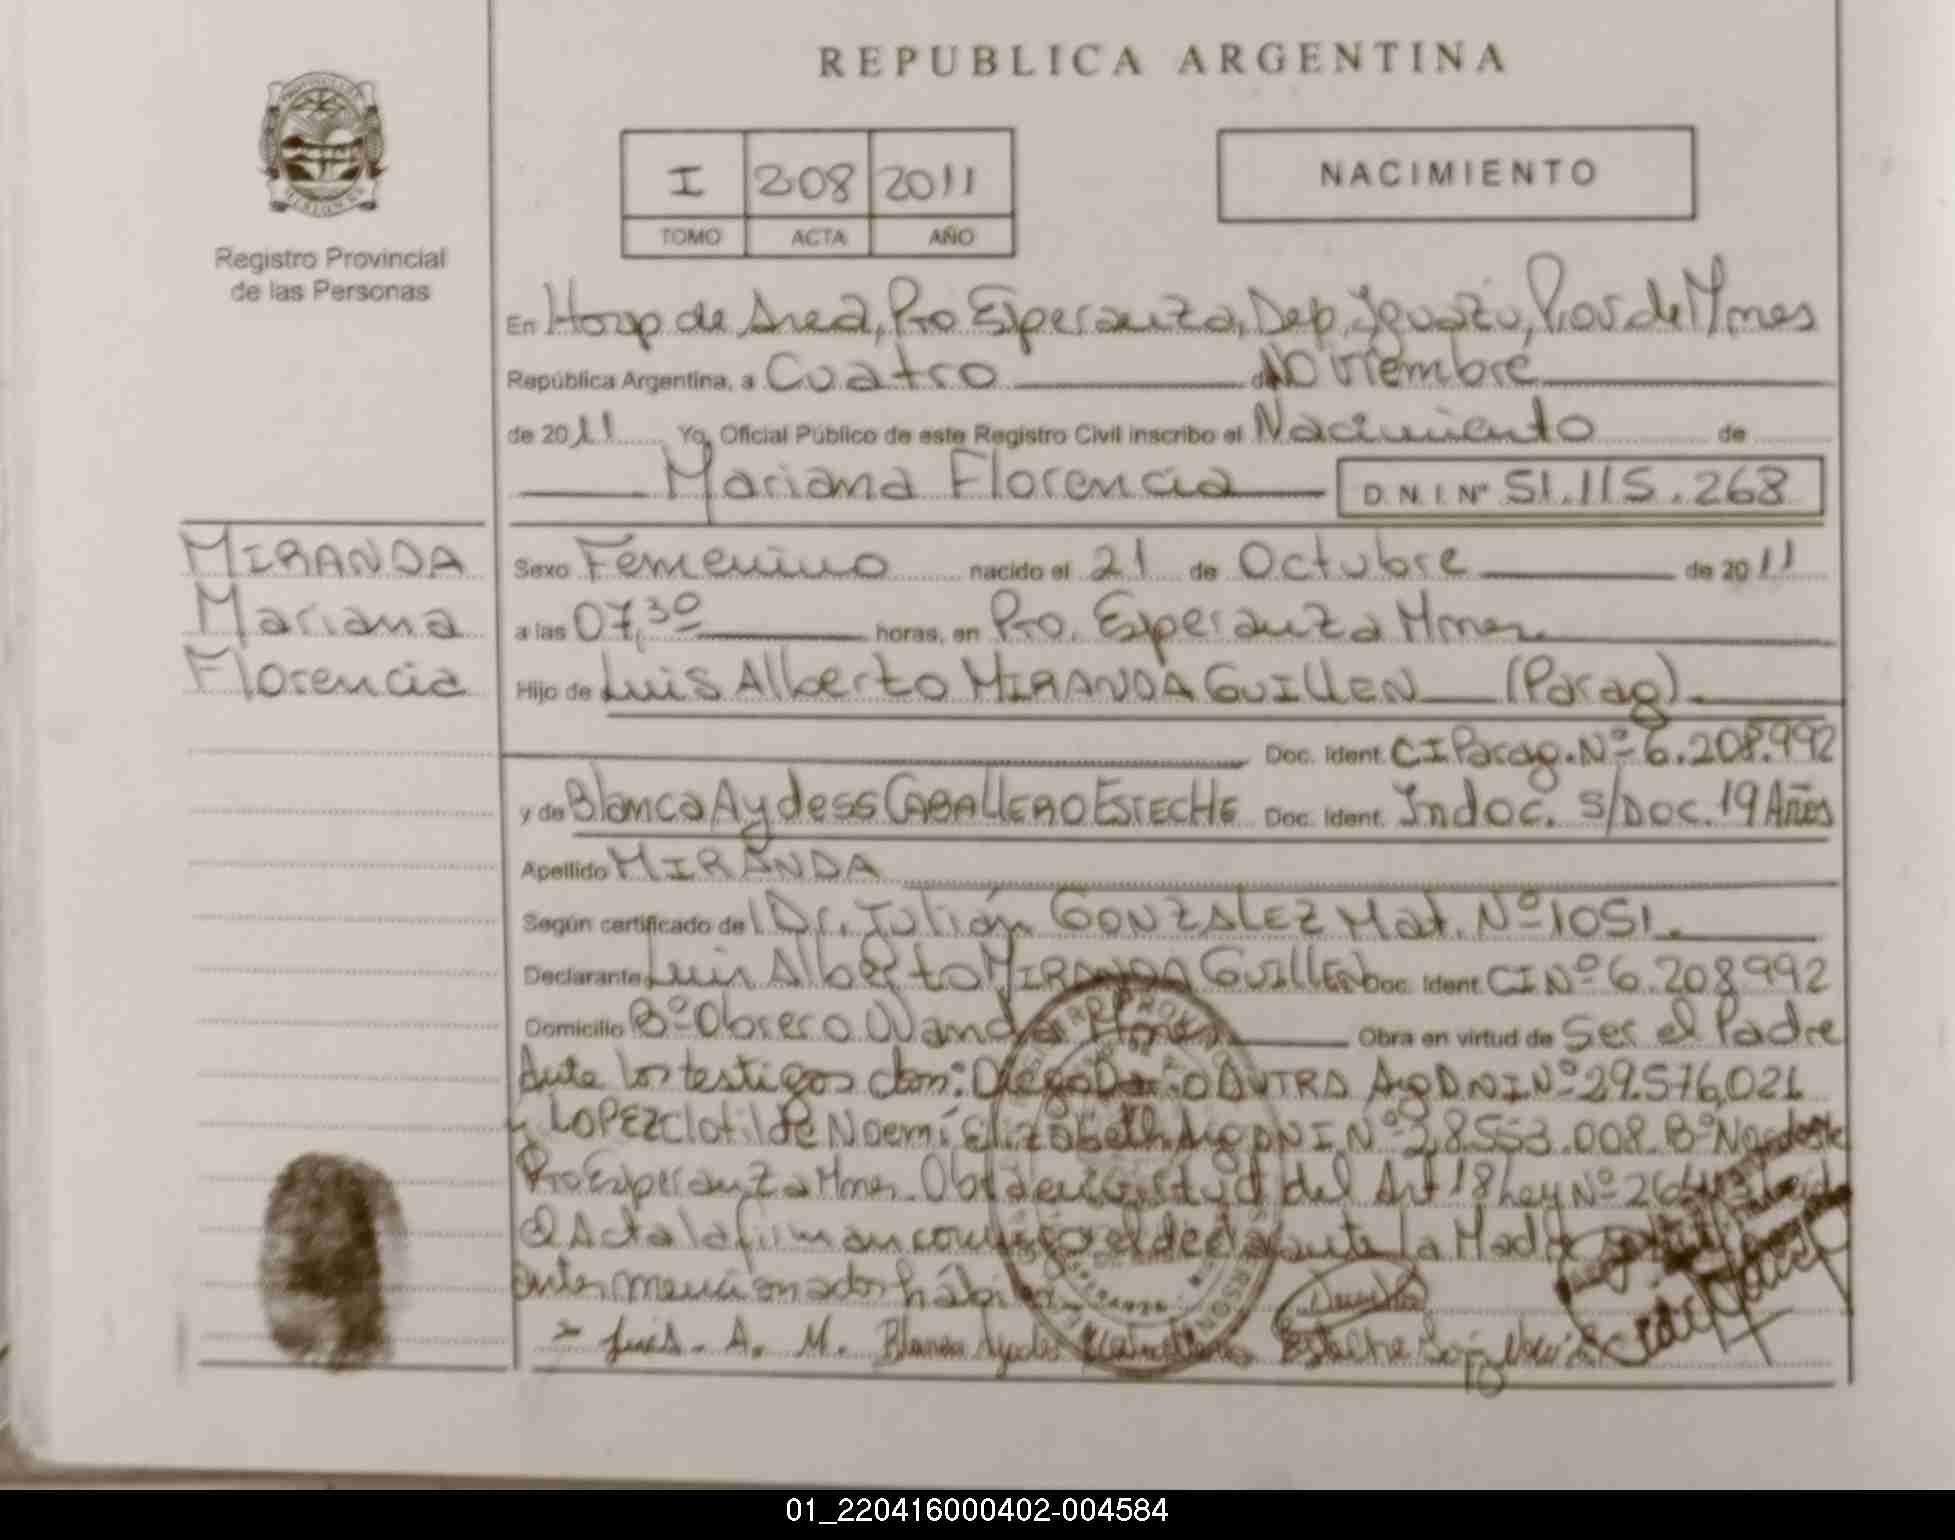 REPUBLICA ARGENTINA
I 208 2011
TOMO ACTA AÑO
NACIMIENTO
Registro Provincial
de las Personas
En Hosp de Area, Pto Esperanza, Dep. Iguazú, Prov de Mnes
República Argentina, a Cuatro de Noviembre
de 2011 Yo, Oficial Público de este Registro Civil inscribo el Nacimiento de
Mariana Florencia D.N.I. Nº 51.115.268
MIRANDA
Mariana
Florencia
Sexo Femenino nacido el 21 de Octubre de 2011
a las 07,30 horas, en Pto. Esperanza Mnes.
Hijo de Luis Alberto MIRANDA GUILLEN (Parag).
Doc. Ident. CI Parag. Nº 6.208.992
y de Blanca Aydess CABALLERO ESTECHE Doc. Ident. Indoc. S/Doc. 19 Años
Apellido MIRANDA
Según certificado de Dr. Julián GONZALEZ Mat. Nº 1051.
Declarante Luis Alberto MIRANDA GUILLEN Doc. Ident. CI Nº 6.208992
Domicilio Bº Obrero Wanda Mnes Obra en virtud de Ser el Padre
Ante los testigos don: Diego DUTRA Arg DNI Nº 29.576,021
y LOPEZ Clotilde Noemí Elizabeth Arg DNI Nº 28.553.008 Bº
Pto Esperanza Mnes. del Art 18 Ley Nº
el Acta la firman conmigo el declarante la Madre
antes mencionados
Luis. A. M. Blanca
01_220416000402-004584